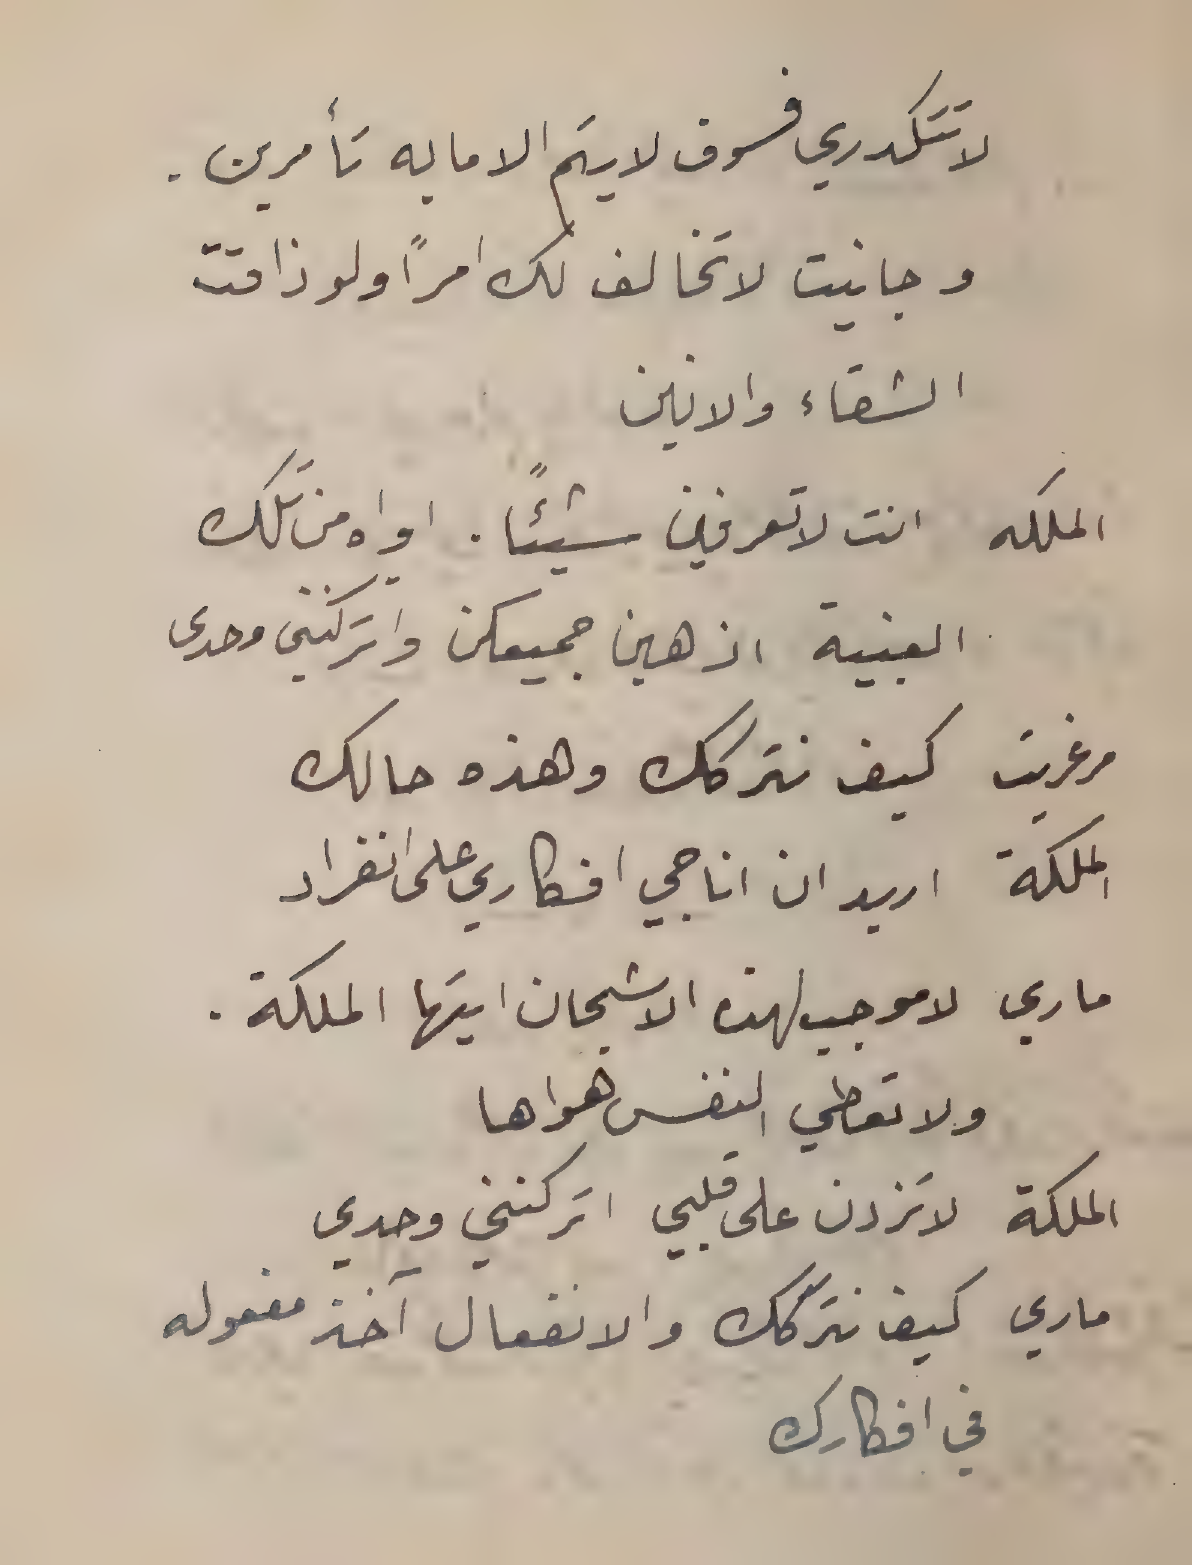 لا تتكدري فسوف لا يتم الا ما به تأمرين .
و جانيت لا تخالف لك امراً ولو ذاقت
الشقاء والانين
الملكه انت لا تعرفين شيئاً . اواه من تلك
الغبية اذهبن جميعكن واتركنني وحدي
مرغريت كيف نتركك وهذه حالك
الملكة اريد ان اناجي افكاري على انفراد
ماري لا موجب لهذه الاشجان ايتها الملكة .
ولا تعطي النفس هواها
الملكة لا تزدن على قلبي اتركنني وحدي
ماري كيف نتركك والانفعال آخذ مفعوله
في افكارك